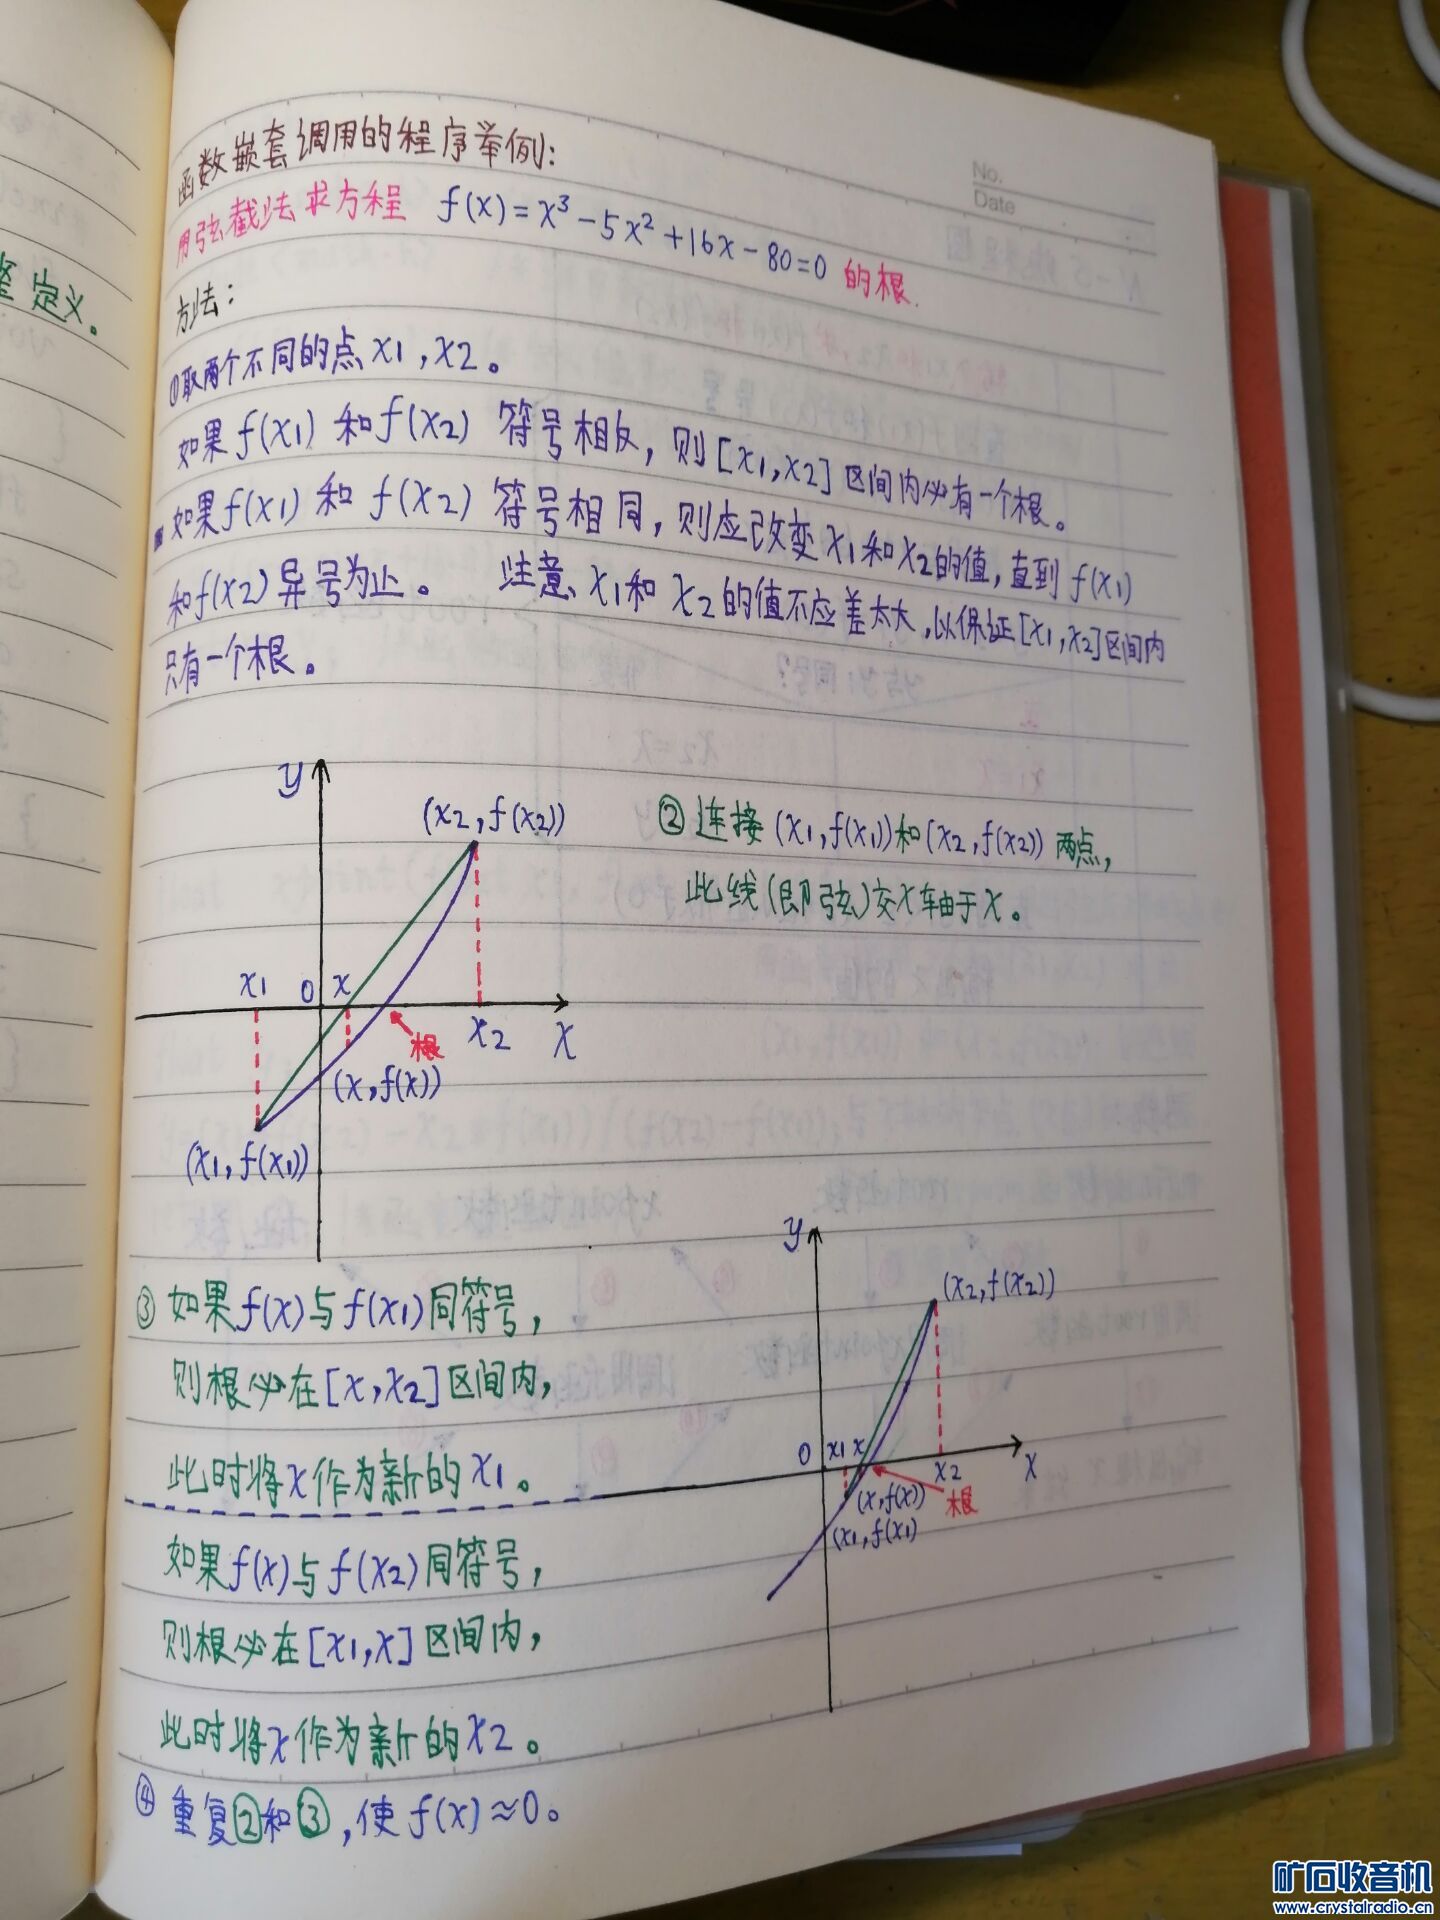 No.
Date
函数嵌套调用的程序举例:
用弦截法求方程 f(x)=x³-5x²+16x-80=0 的根.
方法:
①取两个不同的点x1,x2。
如果f(x1)和f(x2)符号相反,则[x1,x2]区间内必有一个根。
如果f(x1)和f(x2)符号相同,则应改变x1和x2的值,直到f(x1)
和f(x2)异号为止。 注意x1和x2的值不应差太大,以保证[x1,x2]区间内
只有一个根。
整定义。
y
(x2,f(x2))
x1
0
x
根
x2
x
(x,f(x))
(x1,f(x1))
②连接(x1,f(x1))和(x2,f(x2))两点,
此线(即弦)交x轴于x。
③如果f(x)与f(x1)同符号,
则根必在[x,x2]区间内,
此时将x作为新的x1。
如果f(x)与f(x2)同符号,
则根必在[x1,x]区间内,
此时将x作为新的x2。
④重复②和③,使f(x)≈0。
y
(x2,f(x2))
0
x1
x
x2
x
根
(x,f(x))
(x1,f(x1)
矿石收音机
www.crystalradio.cn